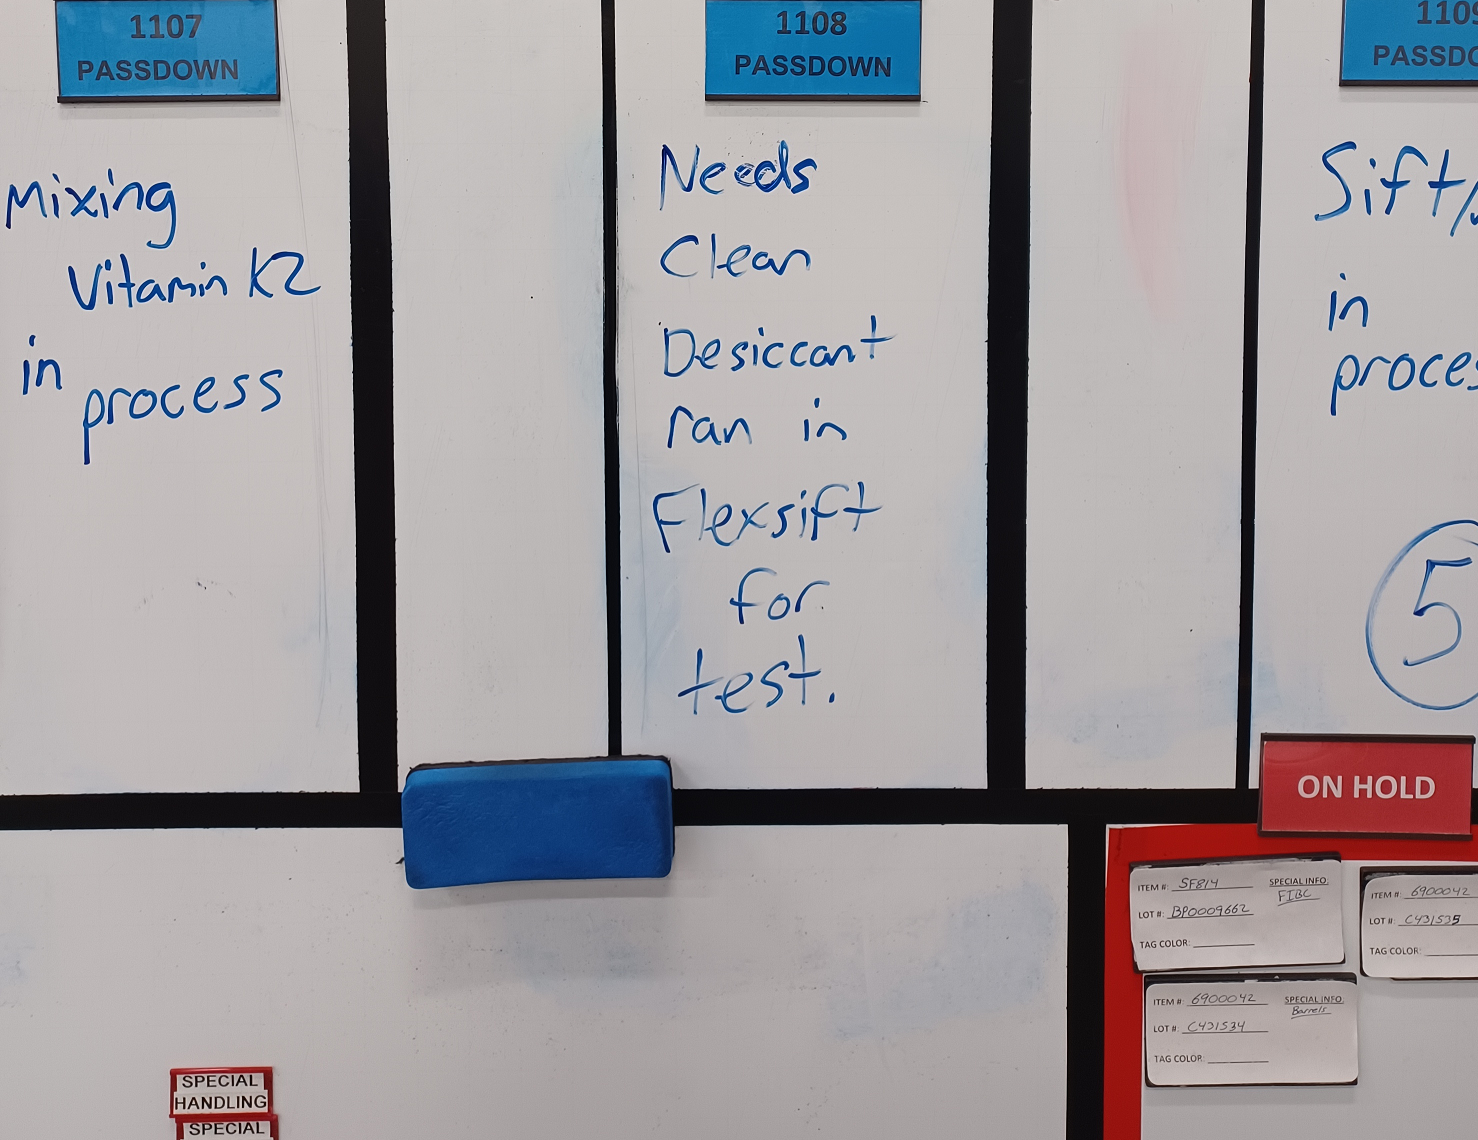 1107
PASSDOWN
Mixing
Vitamin K2
in
process
1108
PASSDOWN
Needs
Clean
Desiccant
ran in
Flexsift
for
test.
1109
PASSDO
Sift/
in
proces
5
ON HOLD
ITEM #: SF814
SPECIAL INFO.
FIBC
LOT #: BP0009662
TAG COLOR:
ITEM #: 6900042
LOT #: C431535
TAG COLOR:
ITEM #: 6900042
SPECIAL INFO.
Barrels
LOT #: C431534
TAG COLOR:
SPECIAL
HANDLING
SPECIAL